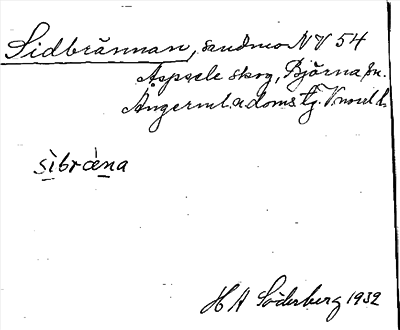 Sidbrännan, sandmo NV 54
Aspsele skog, Björna sn.
Ångerml. adoms tg. V. norrl.
sìbræ̀na
H A Söderberg 1932